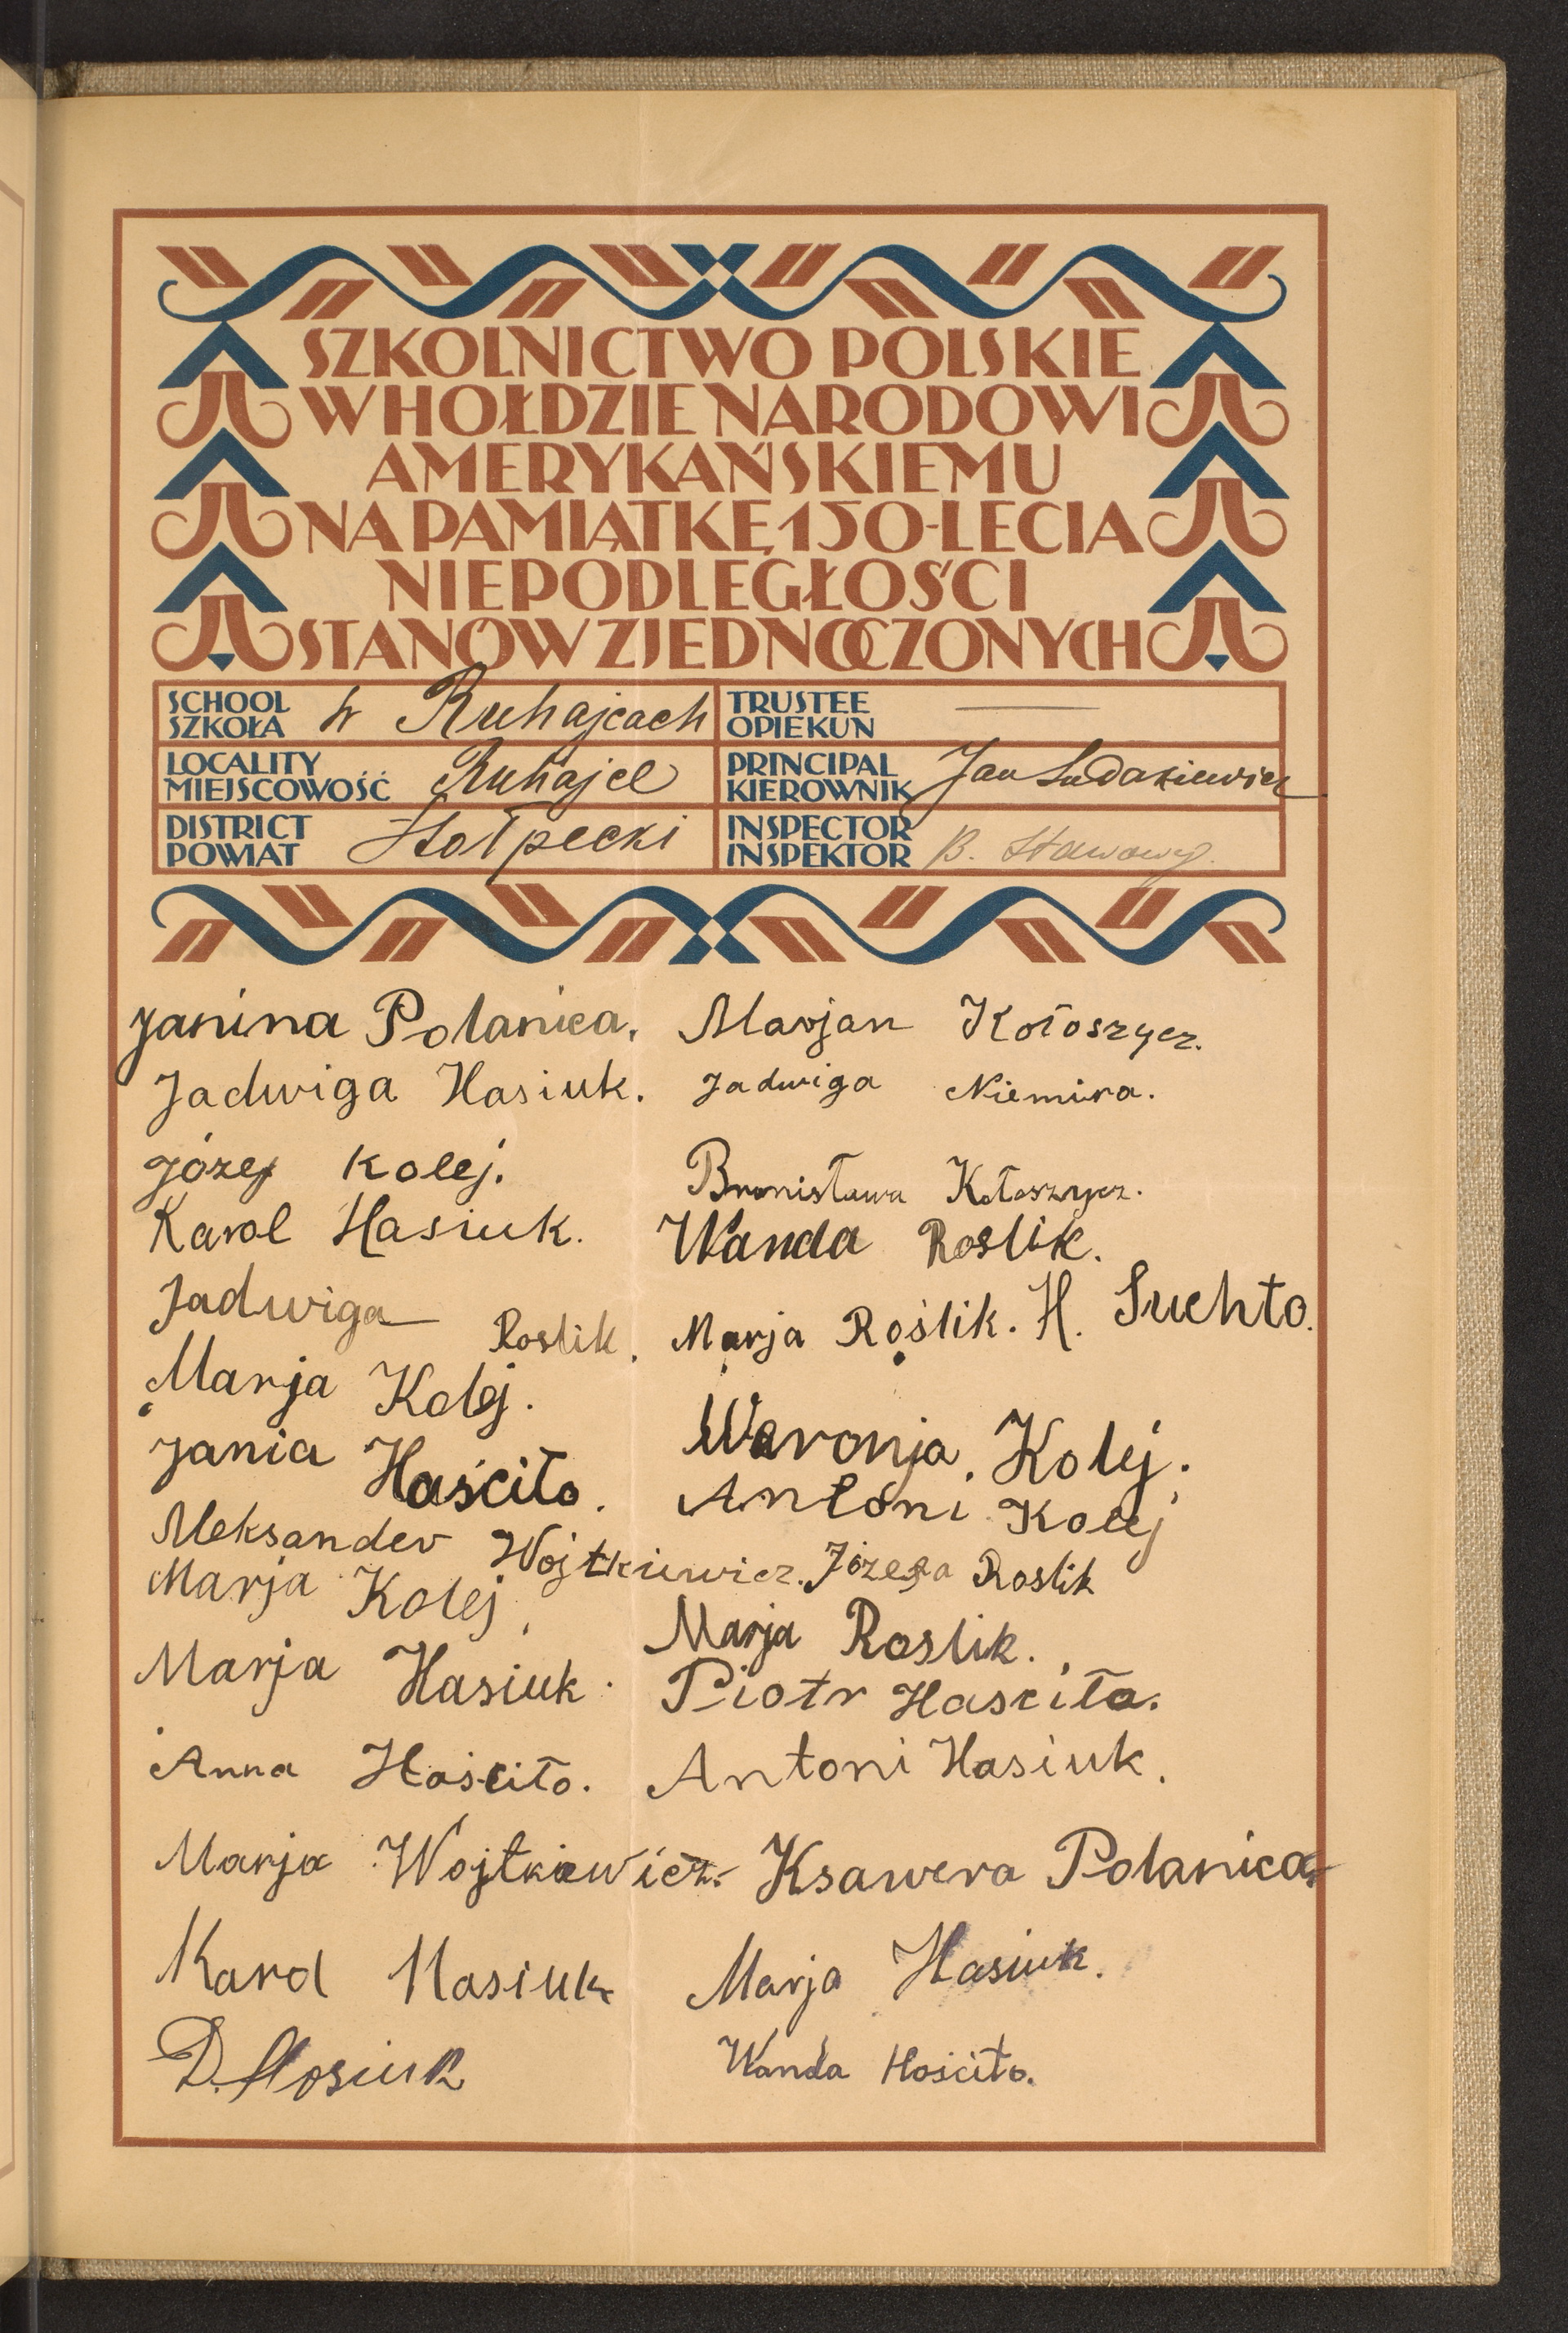 SZKOLNICTWO POLSKIE
W HOŁDZIE NARODOWI
AMERYKAŃSKIEMU
NA PAMIĄTKĘ 150-LECIA
NIEPODLEGŁOŚCI
STANÓW ZJEDNOCZONYCH
SCHOOL
SZKOŁA w Ruhajcach
TRUSTEE
OPIEKUN
LOCALITY
MIEJSCOWOŚĆ Ruhajce
PRINCIPAL
KIEROWNIK Jan
DISTRICT
POWIAT Stołpecki
INSPECTOR
INSPEKTOR B. Stawowy.
Janina Polanica. Marjan Kołoszycz.
Jadwiga Hasiuk. Jadwiga Niemira.
Józef Kolej. Bronisława Kołoszycz.
Karol Hasiuk. Wanda Roslik.
Jadwiga Roslik. Marja Roślik. H. Suchto.
Marja Kolej. Weronja Kolej.
Jania Haściło. Antoni Kolej
Aleksander Wojtkiewicz. Józefa Roslik
Marja Kolej, Marja Roslik.
Marja Hasiuk. Piotr Hasciło.
Anna Hościło. Antoni Hasiuk.
Marja Wojtkiewicz. Ksawera Polanica.
Karol Hasiuk Marja Hasiuk.
D. Hosiuk Wanda Hościło.